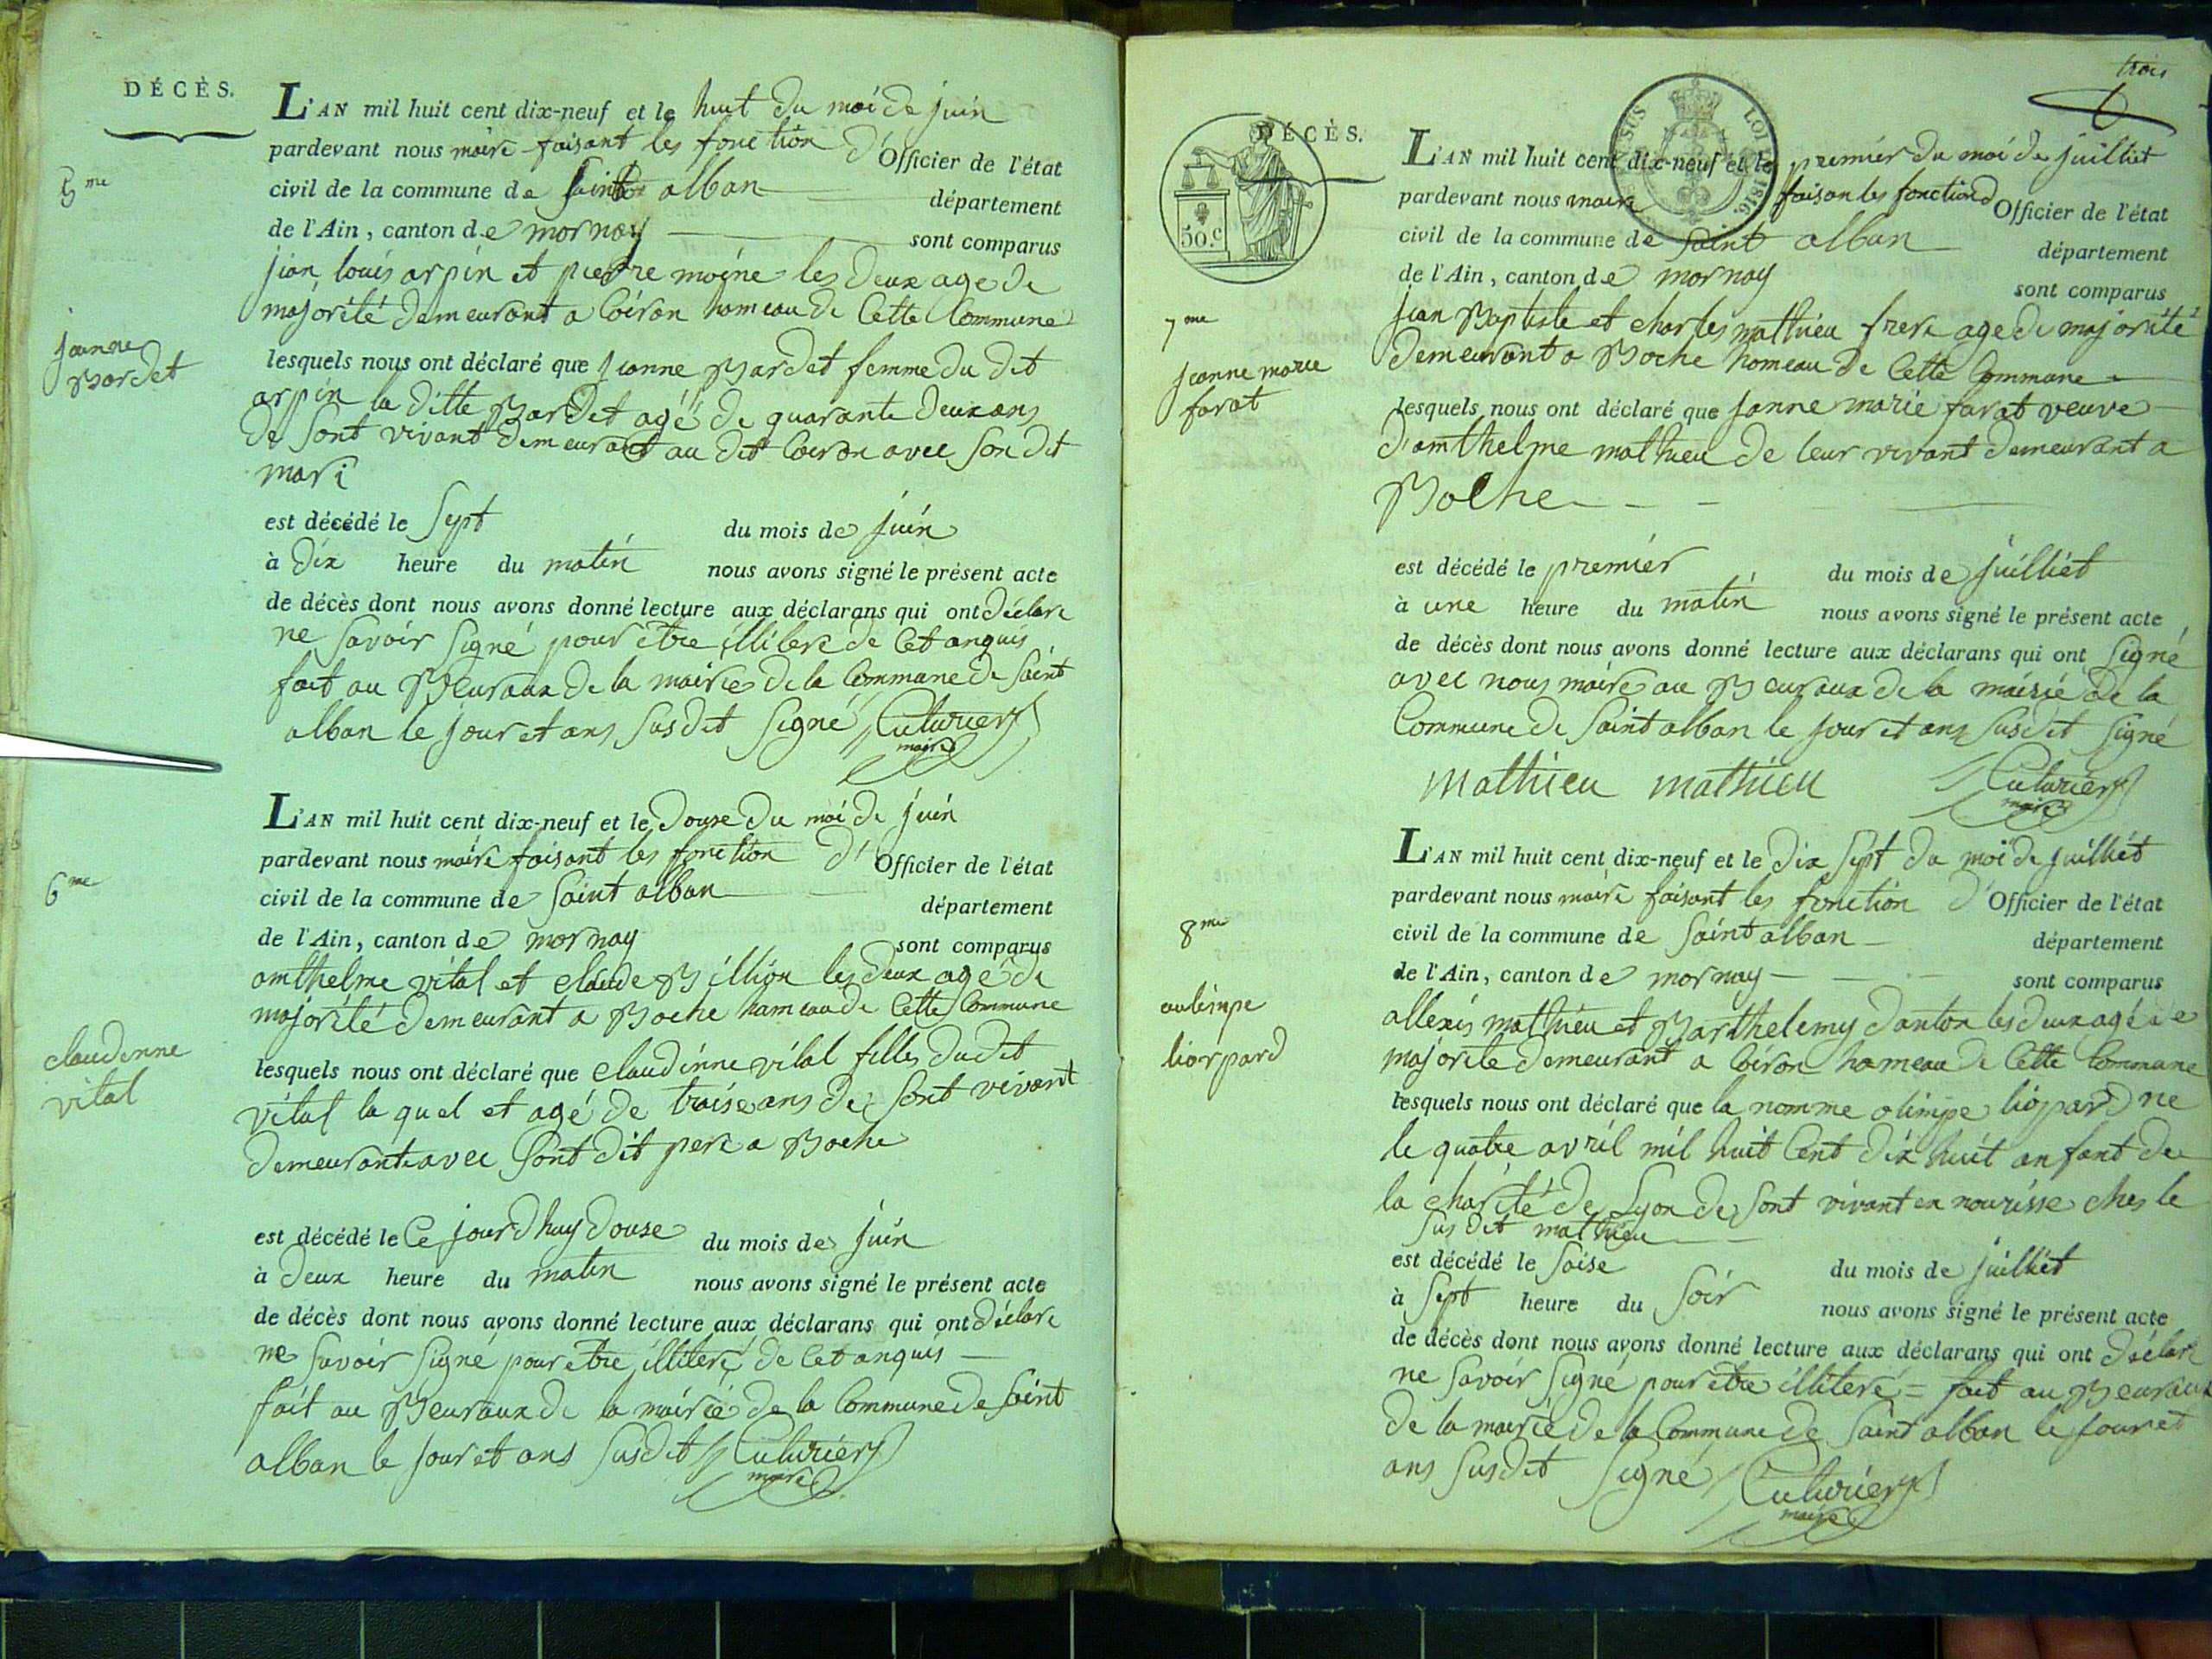 DÉCÈS.
L'AN mil huit cent dix-neuf et le huit du moi de juin
pardevant nous maire faisant les fonction d'Officier de l'état
civil de la commune de Saint alban département
de l'Ain, canton de mornay sont comparus
jean louis arpin et pierre moine les deux age de
majorité demeurant a Coiron hameau de Cette Commune
lesquels nous ont déclaré que jeanne Bardet femme du dit
arpin la ditte Bardet agé de quarante deux ans
de Sont vivant demeurant au dit Coiron avec Son dit
mari
est décédé le Sept du mois de juin
à dix heure du matin nous avons signé le présent acte
de décès dont nous avons donné lecture aux déclarans qui ont déclare
ne Savoir Signé pour être illitere de Cet anquis
fait au Beuraux de la mairie de la Commune de Saint
alban le jour et ans Susdit Signé Cuturier
maire
5me
jeanne
Bardet
L'AN mil huit cent dix-neuf et le douse du moi de juin
pardevant nous maire faisant les fonction d'Officier de l'état
civil de la commune de Saint alban département
de l'Ain, canton de mornay sont comparus
amthelme vital et claude Billion les deux agé de
majorité demeurant a Boche hameau de Cette Commune
lesquels nous ont déclaré que claudinne vital fille dudit
vital la quel et agé de troise ans de Sont vivant
demeurant avec Sont dit pere a Boche
est décédé le Ce jourdhuy douse du mois de juin
à deux heure du matin nous avons signé le présent acte
de décès dont nous avons donné lecture aux déclarans qui ont déclare
ne Savoir Signé pour etre illiteré de Cet anquis
fait au Beuraux de la mairie de la Commune de Saint
alban le jour et ans Susdit Cuturier
maire
6me
claudinne
vital
trois
DÉCÈS.
50.c
LOI 1816.
L'AN mil huit cent dix-neuf et le premier du moi de juilliet
pardevant nous maire faisan les fonction d Officier de l'état
civil de la commune de Saint alban département
de l'Ain, canton de mornay sont comparus
jean Baptiste et charles mathieu frere age de majorité
demeurant a Boche hameau de Cette Commune
lesquels nous ont déclaré que janne marie farat veuve
d'amthelme mathieu de leur vivant demeurant a
Boche
est décédé le premier du mois de juilliet
à une heure du matin nous avons signé le présent acte
de décès dont nous avons donné lecture aux déclarans qui ont Signé
avec nous maire au Beuraux de la mairie de la
Commune de Saint alban le jour et ans Susdit Signé
mathieu mathieu Cuturier
maire
7me
jeanne marie
farat
L'AN mil huit cent dix-neuf et le dix Sept du moi de juilliet
pardevant nous maire faisant les fonction d'Officier de l'état
civil de la commune de Saint alban département
de l'Ain, canton de mornay sont comparus
allexis mathieu et Barthelemy danton les deux agé de
majorite demeurant a Coiron hameau de Cette Commune
lesquels nous ont déclaré que la nomme olimpe liopard ne
le quatre avril mil huit Cent dix huit anfant de
la charité de Lyon de Sont vivant en nourisse ches le
Susdit mathieu
est décédé le Saise du mois de juilliet
à Sept heure du Soir nous avons signé le présent acte
de décès dont nous avons donné lecture aux déclarans qui ont déclare
ne Savoir Signé pour etre illiteré = fait au Beuraux
de la mairie de la Commune de Saint alban le jour et
ans Susdit Signé Cuturier
maire
8me
liorpard